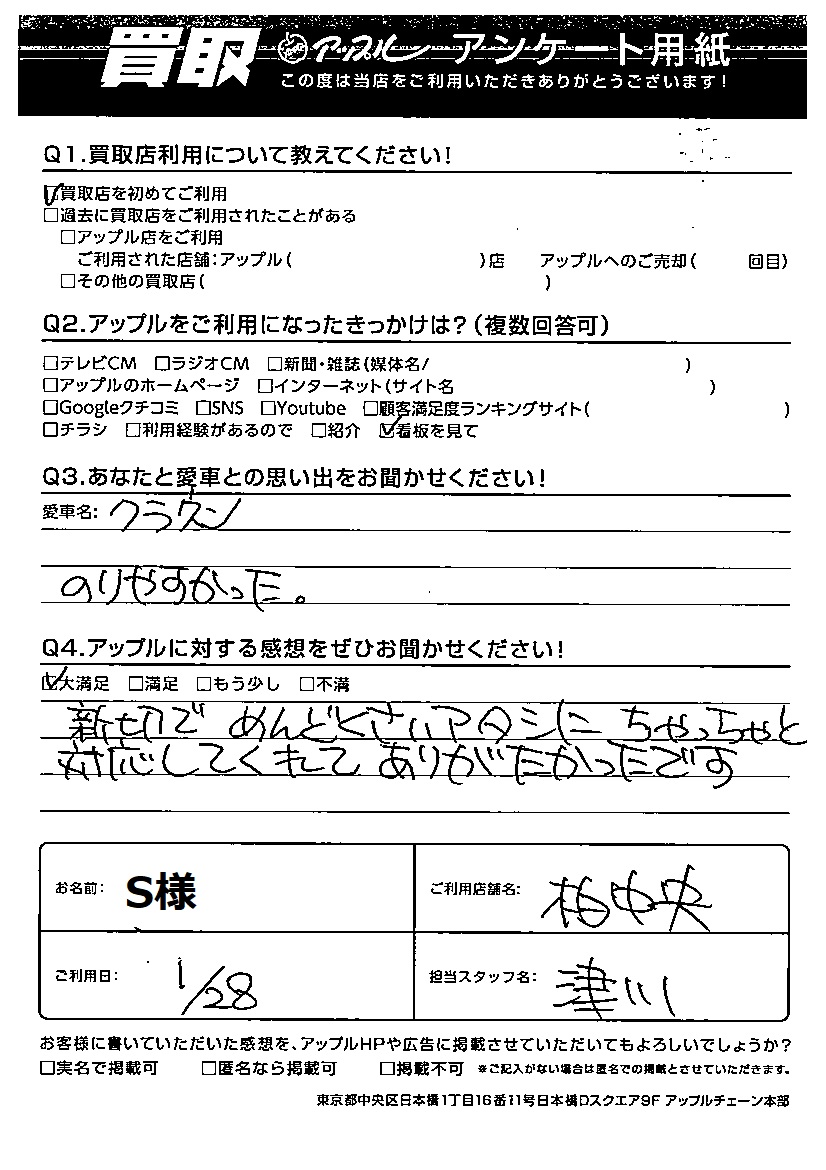 買取 アップル アンケート用紙
この度は当店をご利用いただきありがとうございます!
Q1.買取店利用について教えてください!
☑買取店を初めてご利用
□過去に買取店をご利用されたことがある
□アップル店をご利用
ご利用された店舗:アップル( )店 アップルへのご売却( 回目)
□その他の買取店( )
Q2.アップルをご利用になったきっかけは?(複数回答可)
□テレビCM □ラジオCM □新聞・雑誌(媒体名/ )
□アップルのホームページ □インターネット(サイト名 )
□Googleクチコミ □SNS □Youtube □顧客満足度ランキングサイト( )
□チラシ □利用経験があるので □紹介 ☑看板を見て
Q3.あなたと愛車との思い出をお聞かせください!
愛車名: クラウン
のりやすかった。
Q4.アップルに対する感想をぜひお聞かせください!
☑大満足 □満足 □もう少し □不満
新切で めんどくさいアタシに ちゃっちゃと
対応してくれて ありがたかったです
お名前: S様 ご利用店舗名: 柏中央
ご利用日: 1/28 担当スタッフ名: 津川
お客様に書いていただいた感想を、アップルHPや広告に掲載させていただいてもよろしいでしょうか?
□実名で掲載可 □匿名なら掲載可 □掲載不可 ※ご記入がない場合は匿名での掲載とさせていただきます。
東京都中央区日本橋1丁目16番11号日本橋Dスクエア9F アップルチェーン本部